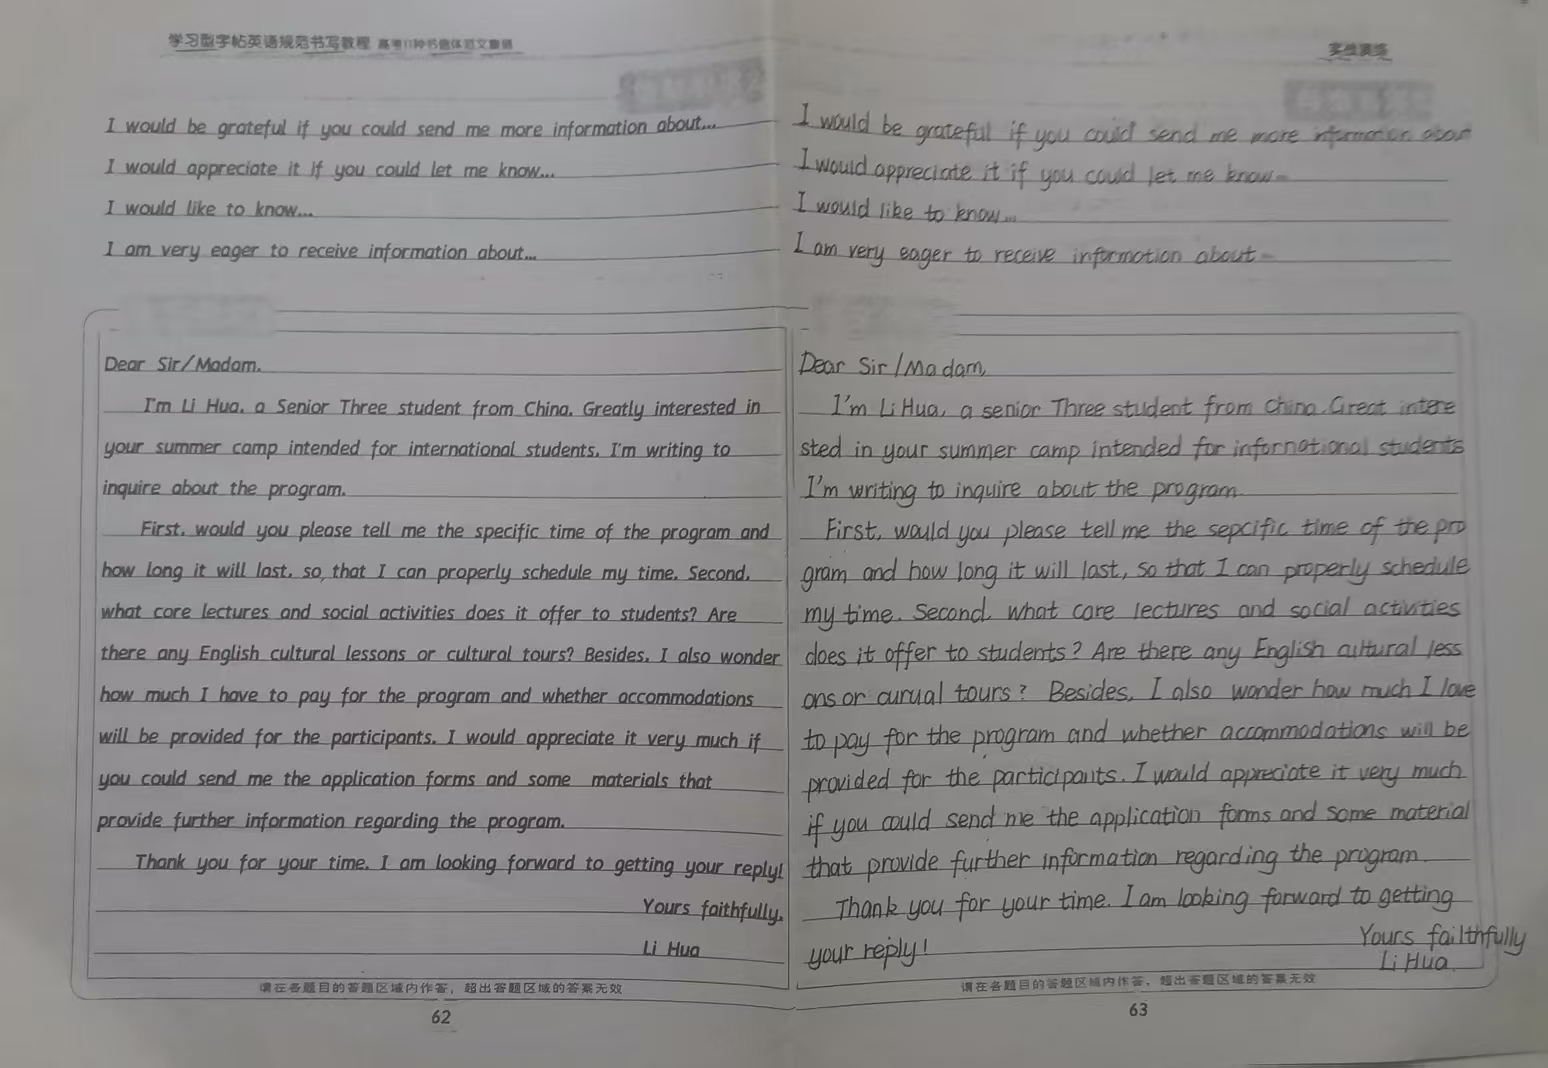 学习型字帖英语规范书写教程 高考11种书信体范文集锦
I would be grateful if you could send me more information about...
I would appreciate it if you could let me know...
I would like to know...
I am very eager to receive information about...
Dear Sir/Madam,
I'm Li Hua, a Senior Three student from China. Greatly interested in
your summer camp intended for international students, I'm writing to
inquire about the program.
First, would you please tell me the specific time of the program and
how long it will last, so that I can properly schedule my time. Second,
what core lectures and social activities does it offer to students? Are
there any English cultural lessons or cultural tours? Besides, I also wonder
how much I have to pay for the program and whether accommodations
will be provided for the participants. I would appreciate it very much if
you could send me the application forms and some materials that
provide further information regarding the program.
Thank you for your time. I am looking forward to getting your reply!
Yours faithfully,
Li Hua
请在各题目的答题区域内作答，超出答题区域的答案无效
62
实战演练
I would be grateful if you could send me more information about
I would appreciate it if you could let me know...
I would like to know...
I am very eager to receive information about...
Dear Sir/Madam,
I'm Li Hua, a senior Three student from China. Great intere
sted in your summer camp intended for informational students
I'm writing to inquire about the program.
First, would you please tell me the sepcific time of the pro
gram and how long it will last, so that I can properly schedule
my time. Second, what core lectures and social activities
does it offer to students? Are there any English cultural less
ons or tours? Besides, I also wonder how much I love
to pay for the program and whether accommodations will be
provided for the participants. I would appreciate it very much
if you could send me the application forms and some material
that provide further information regarding the program
Thank you for your time. I am looking forward to getting
your reply!
Yours failthfully
Li Hua
请在各题目的答题区域内作答，超出答题区域的答案无效
63